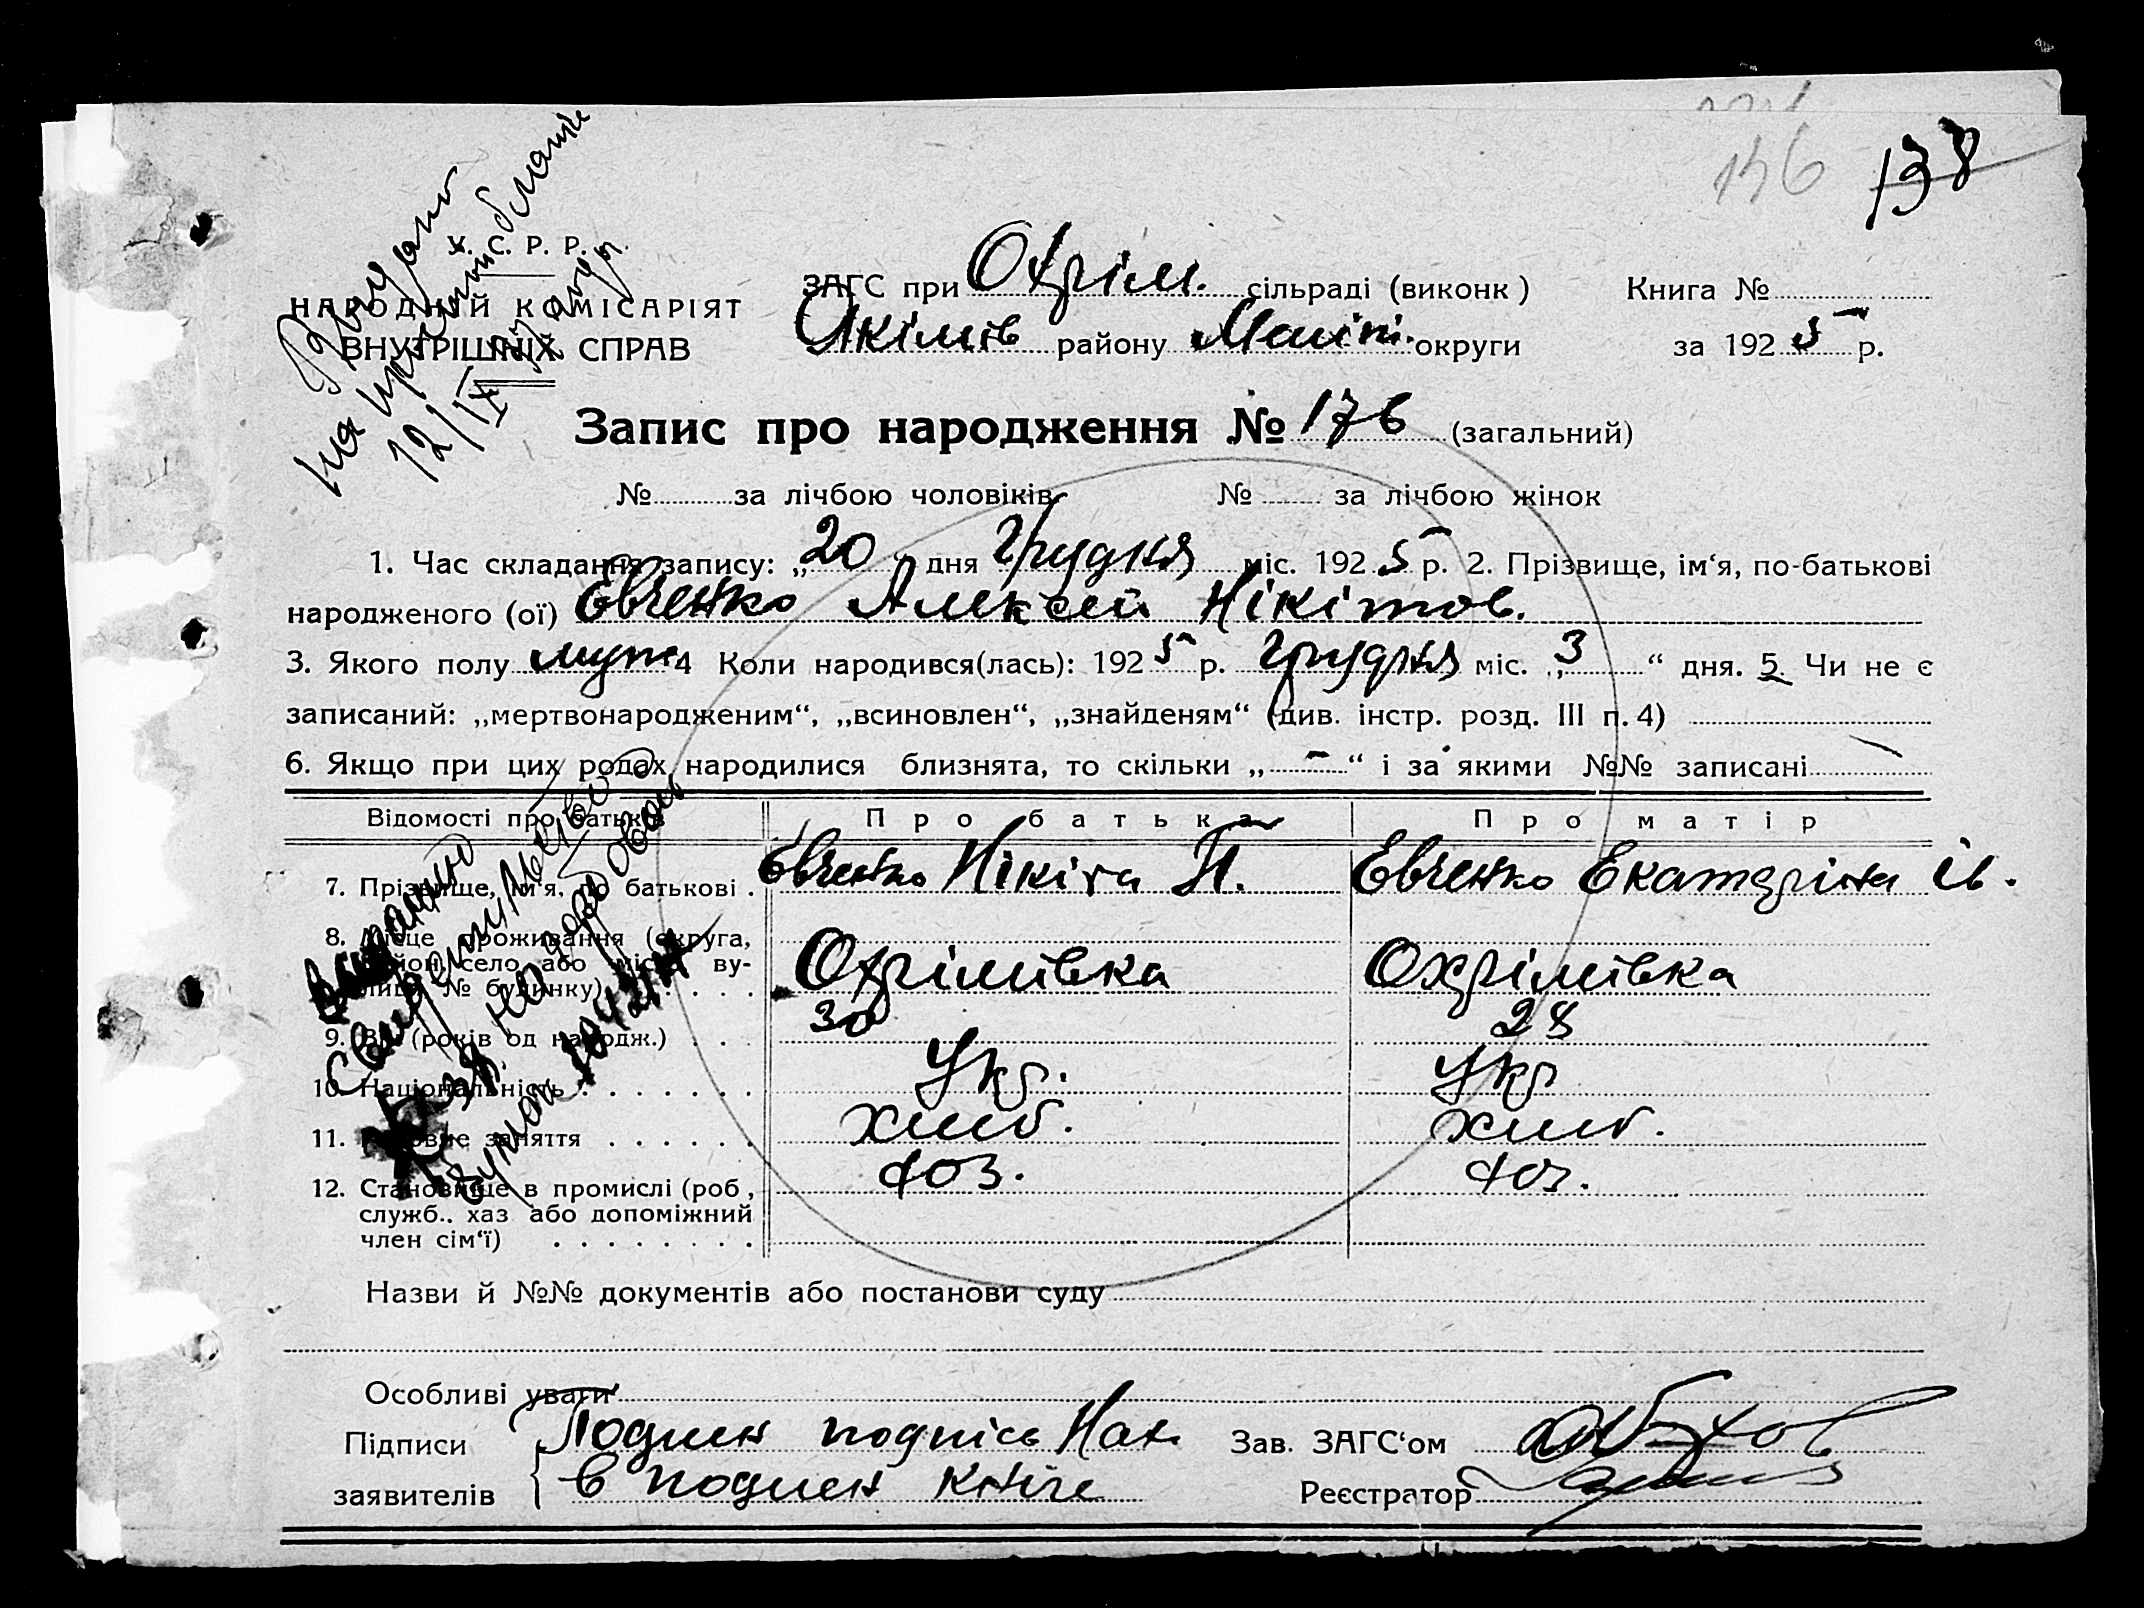 136 138
У. С. Р. Р.
НАРОДНИЙ КОМІСАРІЯТ
ВНУТРІШНІХ СПРАВ
ЗАГС при Охрім. сільраді (виконк) Книга №
Якімів району Меліт. округи за 1925 р.
Запис про народження № 176 (загальний)
№ за лічбою чоловіків № за лічбою жінок
1. Час складання запису: „20 дня Грудня міс. 1925 р. 2. Прізвище, ім‘я, по-батькові
народженого (ої) Євченко Алексей Нікітов.
3. Якого полу муж 4 Коли народився(лась): 1925 р. Грудня міс. „3“ дня. 5. Чи не є
записаний: „мертвонародженим“, „всиновлен“, „знайденям“ (див. інстр. розд. III п. 4)
6. Якщо при цих родах народилися близнята, то скільки „-“ і за якими №№ записані
Відомості про батьків Про батька Про матір
7. Прізвище, ім‘я, по батькові . Євченко Нікіта Н. Евченко Екатеріна Ів.
8. Місце проживання (округа, район, село або місто, ву-
лиця, № будинку) . . . . Охрімівка Охрімівка
9. Вік (років од народж.) . . . 30 28
10. Національність . . . . . . . Укр. Укр
11. Головне заняття . . . . . . хліб. хліб.
12. Становище в промислі (роб., хоз. хоз.
служб., хаз або допоміжний
член сім‘ї) . . . . . . . .
Назви й №№ документів або постанови суду
Особливі уваги
Підписи Подлен подпісь Нах. Зав. ЗАГС‘ом
заявителів в подлен кніге Реєстратор
12/IX
Свидетельство